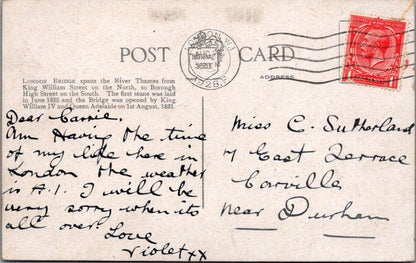 POST CARD
ADDRESS
LONDON BRIDGE spans the River Thames from
King William Street on the North, to Borough
High Street on the South. The first stone was laid
in June 1825 and the Bridge was opened by King
William IV and Queen Adelaide on 1st August, 1831
Dear Carrie.
Am Having the time
of my life here in
London the weather
is A.1. I will be
very sorry when its
all over. Love
Violet xx
Miss C. Sutherland
7 East Terrace
Coxville
Near Durham